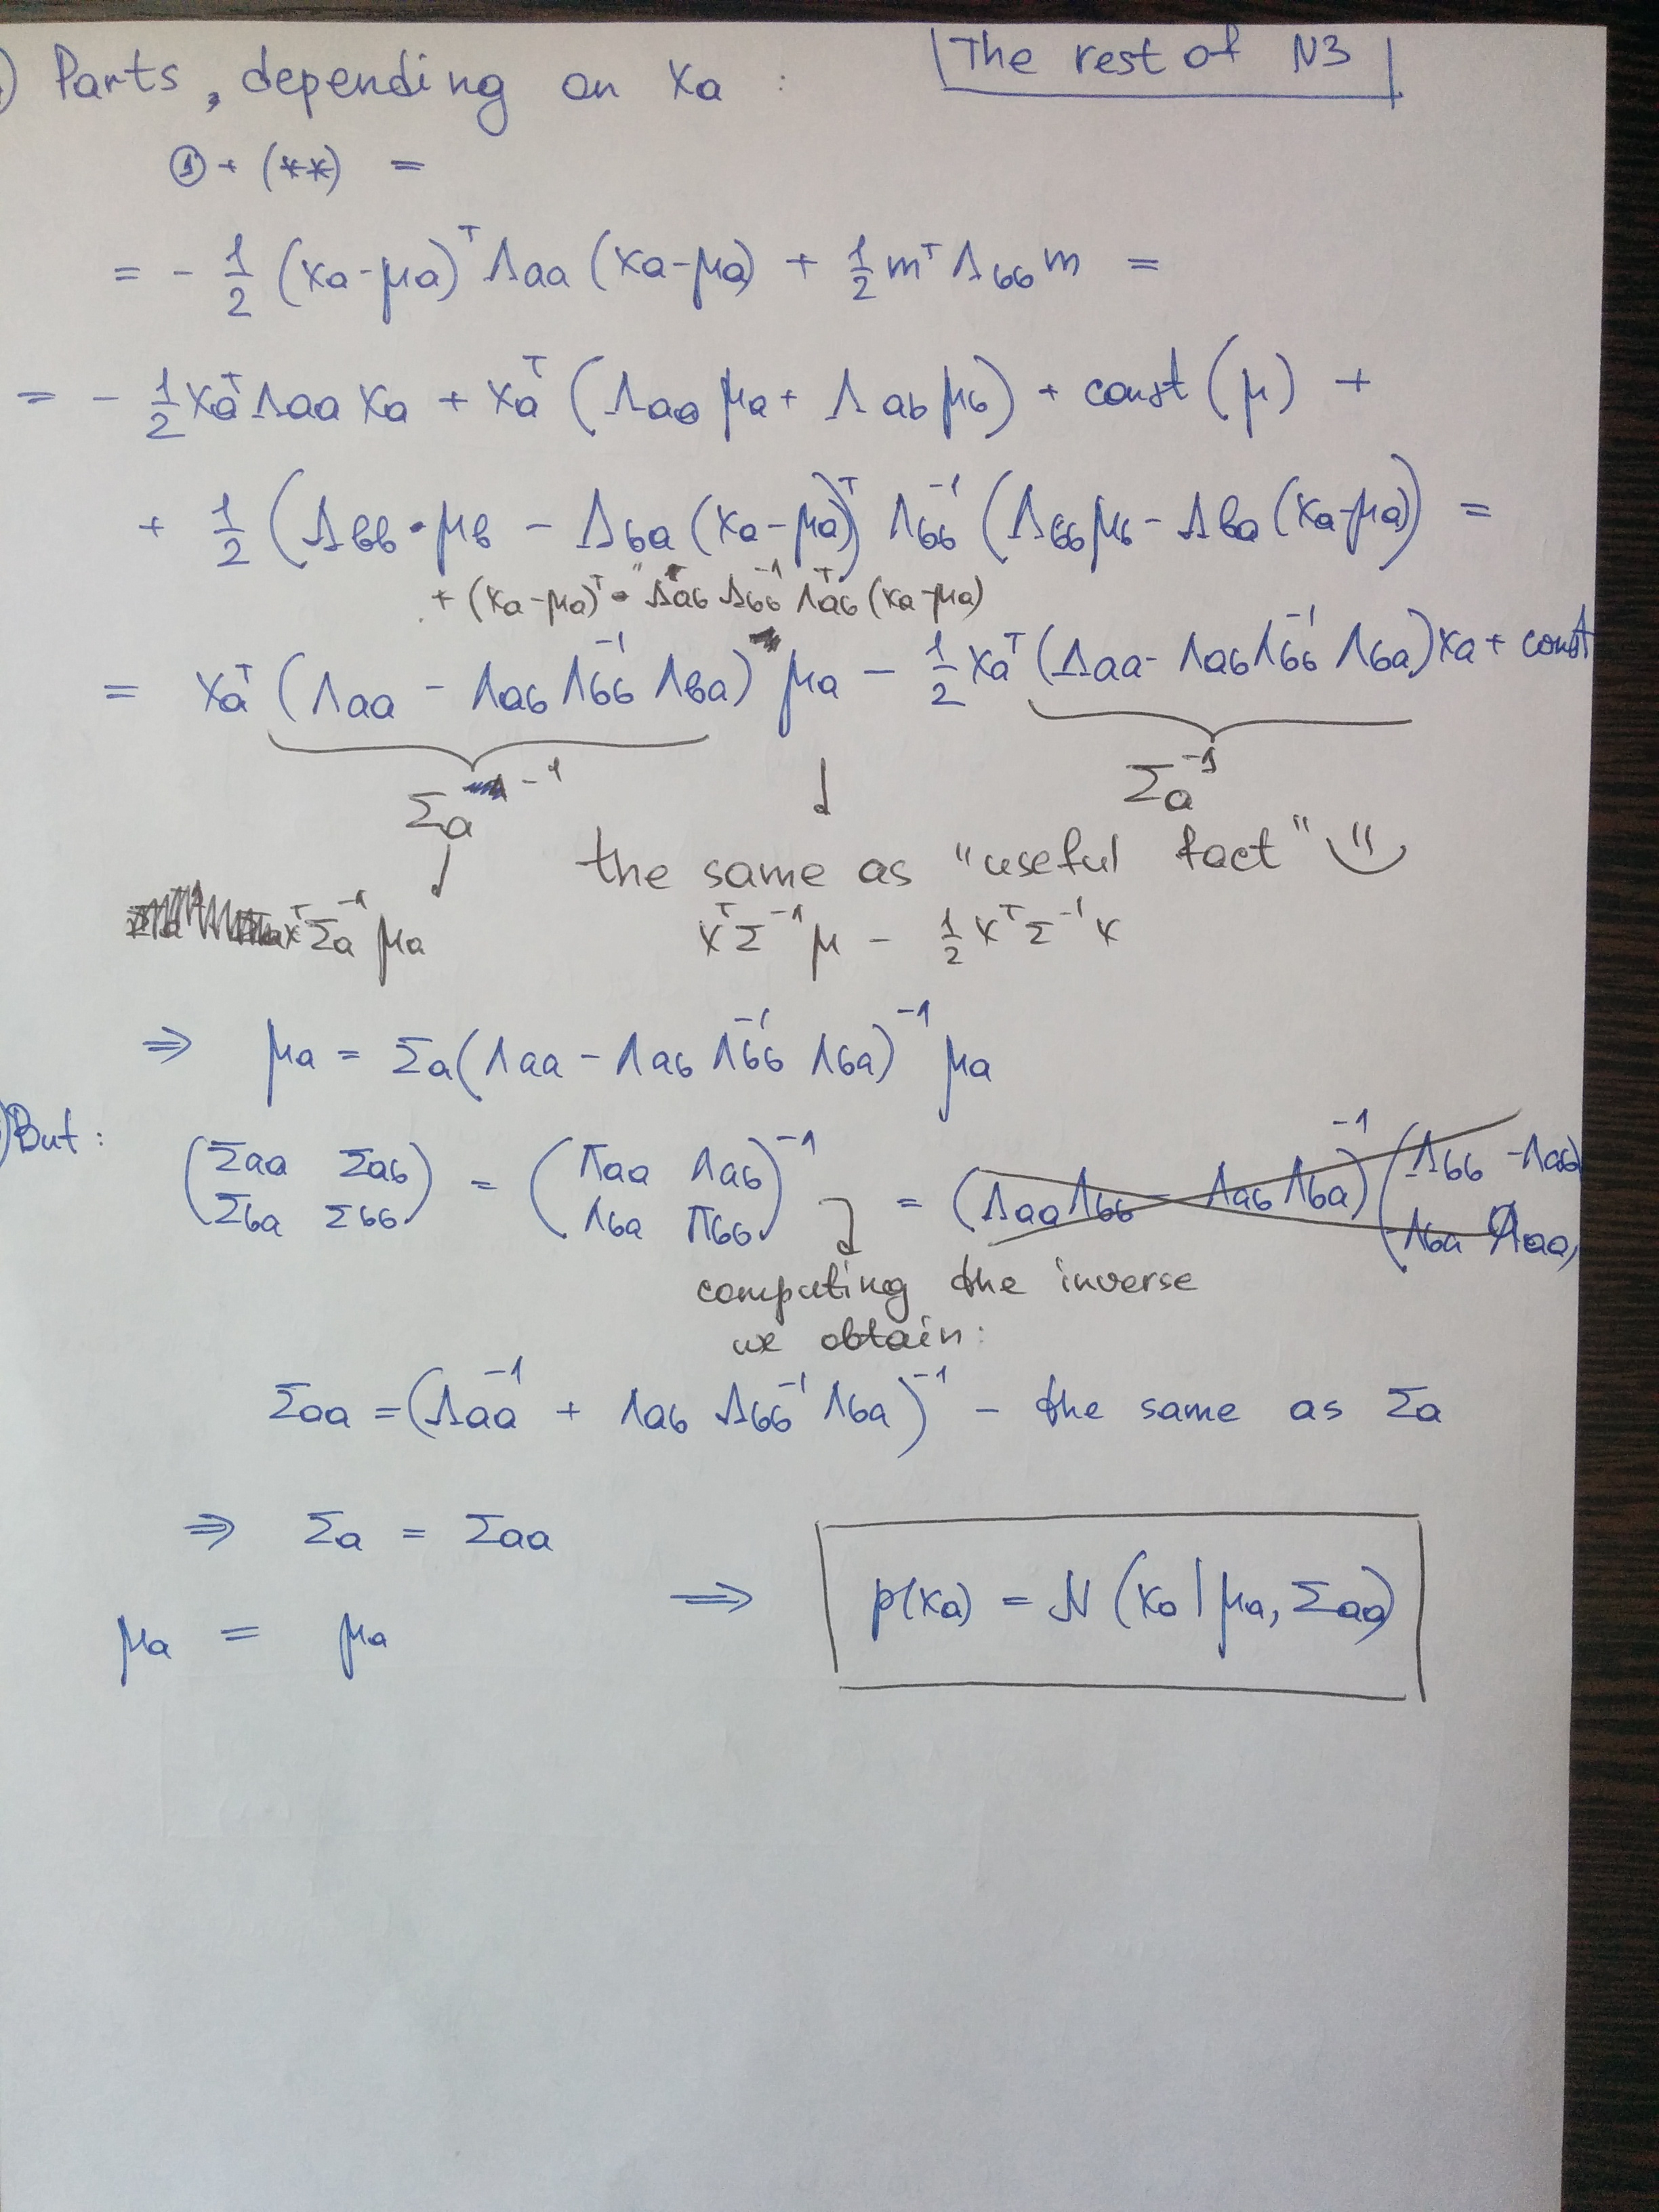 ) Parts, depending on xa : The rest of N3
① + (**) =
= - 1/2 (xa - μa)ᵀ Λaa (xa - μa) + 1/2 mᵀ Λbb m =
= - 1/2 xaᵀ Λaa xa + xaᵀ (Λaa μa + Λab μb) + const (μ) +
+ 1/2 (Λbb · μb - Λba (xa - μa))ᵀ Λbb⁻¹ (Λbb μb - Λba (xa - μa)) =
+ (xa - μa)ᵀ · Λab Λbb⁻¹ Λabᵀ (xa - μa)
= xaᵀ (Λaa - Λab Λbb⁻¹ Λba) μa - 1/2 xaᵀ (Λaa - Λab Λbb⁻¹ Λba) xa + const
Σa⁻¹ ↓ Σa⁻¹
↓ the same as "useful fact"
xᵀ Σa⁻¹ μa xᵀ Σ⁻¹ μ - 1/2 xᵀ Σ⁻¹ x
⇒ μa = Σa (Λaa - Λab Λbb⁻¹ Λba)⁻¹ μa
) But :
(Σaa Σab) = (Λaa Λab)⁻¹ = (Λaa Λbb - Λab Λba)⁻¹ (Λbb -Λab)
(Σba Σbb) (Λba Λbb) (Λba Λaa)
computing the inverse
we obtain:
Σaa = (Λaa⁻¹ + Λab Λbb⁻¹ Λba)⁻¹ - the same as Σa
⇒ Σa = Σaa
μa = μa ⇒ p(xa) = N (xa | μa, Σaa)